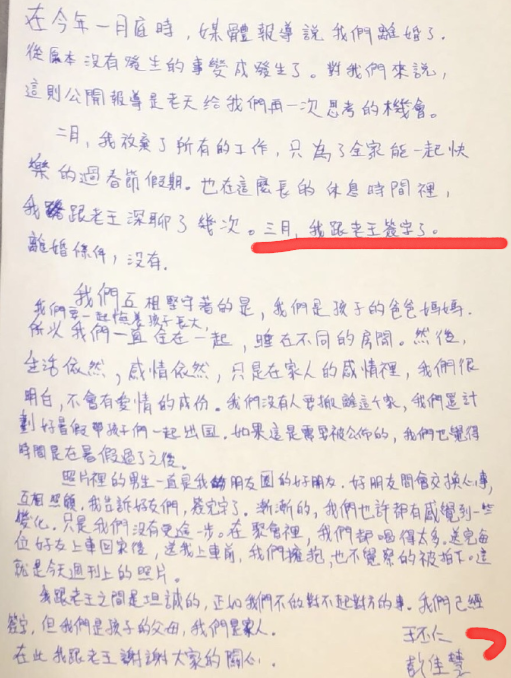 在今年一月底時，媒體報導說我們離婚了．
從原本沒有發生的事變成發生了。對我們來說，
這則公開報導是老天給我們再一次思考的機會。
二月，我放棄了所有的工作，只為了全家能一起快
樂的過春節假期．也在這麼長的休息時間裡，
我跟老王深聊了幾次。三月，我跟老王簽字了。
離婚條件，沒有．
我們互相堅守著的是，我們是孩子的爸爸媽媽．
我們要一起陪著孩子長大，
所以我們一直住在一起，睡在不同的房間。然後，
生活依然，感情依然，只是在家人的感情裡，我們很
明白，不會有愛情的成份。我們沒有人要搬離這个家，我們是計
劃好暑假帶孩子們一起出國．如果這是需要被公佈的，我們也覺得
時間是在暑假過了之後。
照片裡的男生一直是我的朋友圈的好朋友．好朋友間會交換心事，
互相照顧．我告訴好友們，簽完字了．漸漸的，我們也許都有感覺到一些
變化．只是我們沒有更進一步。在聚會裡，我們都喝得太多．送完每
位好友上車回家後，送我上車前，我們擁抱，也不覺察的被拍下．這
就是今天週刊上的照片。
我跟老王之間是坦誠的，正如我們不做對不起對方的事．我們已經
簽字，但我們是孩子的父母，我們是家人．
在此我跟老王謝謝大家的關心．
王丕仁
彭佳慧